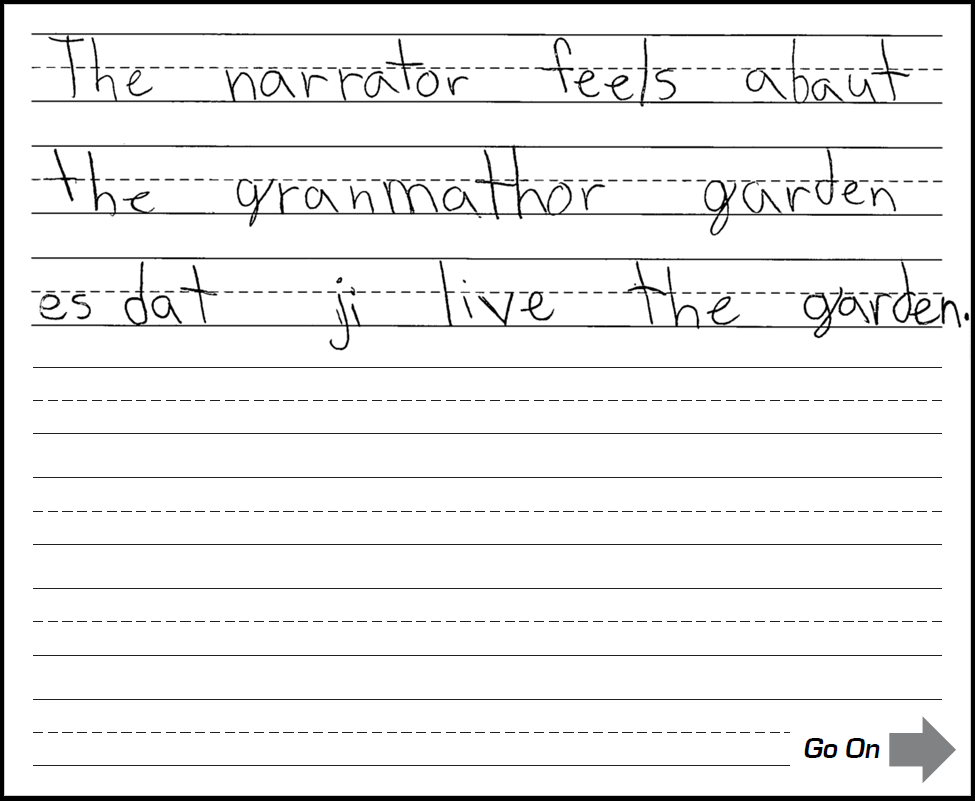 The narrator feels abaut
the granmathor garden
es dat ji live the garden.
Go On